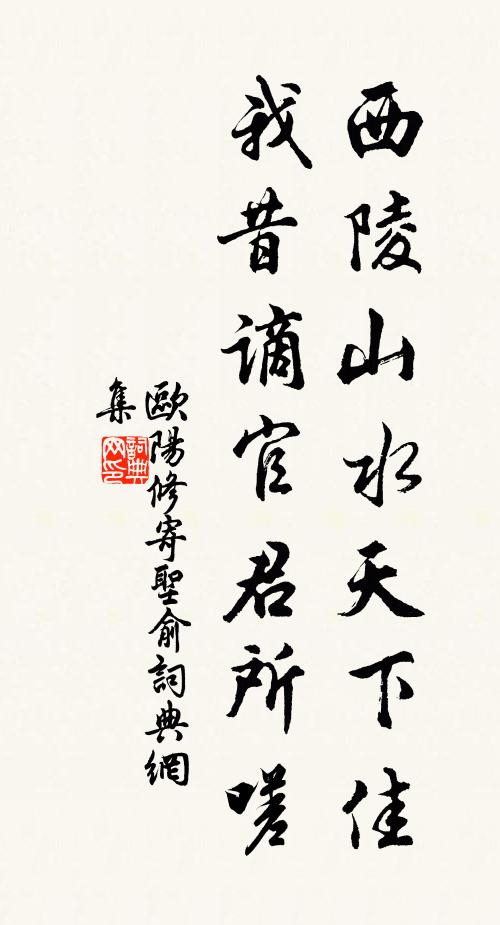 西陵山水天下佳
我昔謫官君所嗟
歐陽修寄聖俞詞典網
集
詞典網印